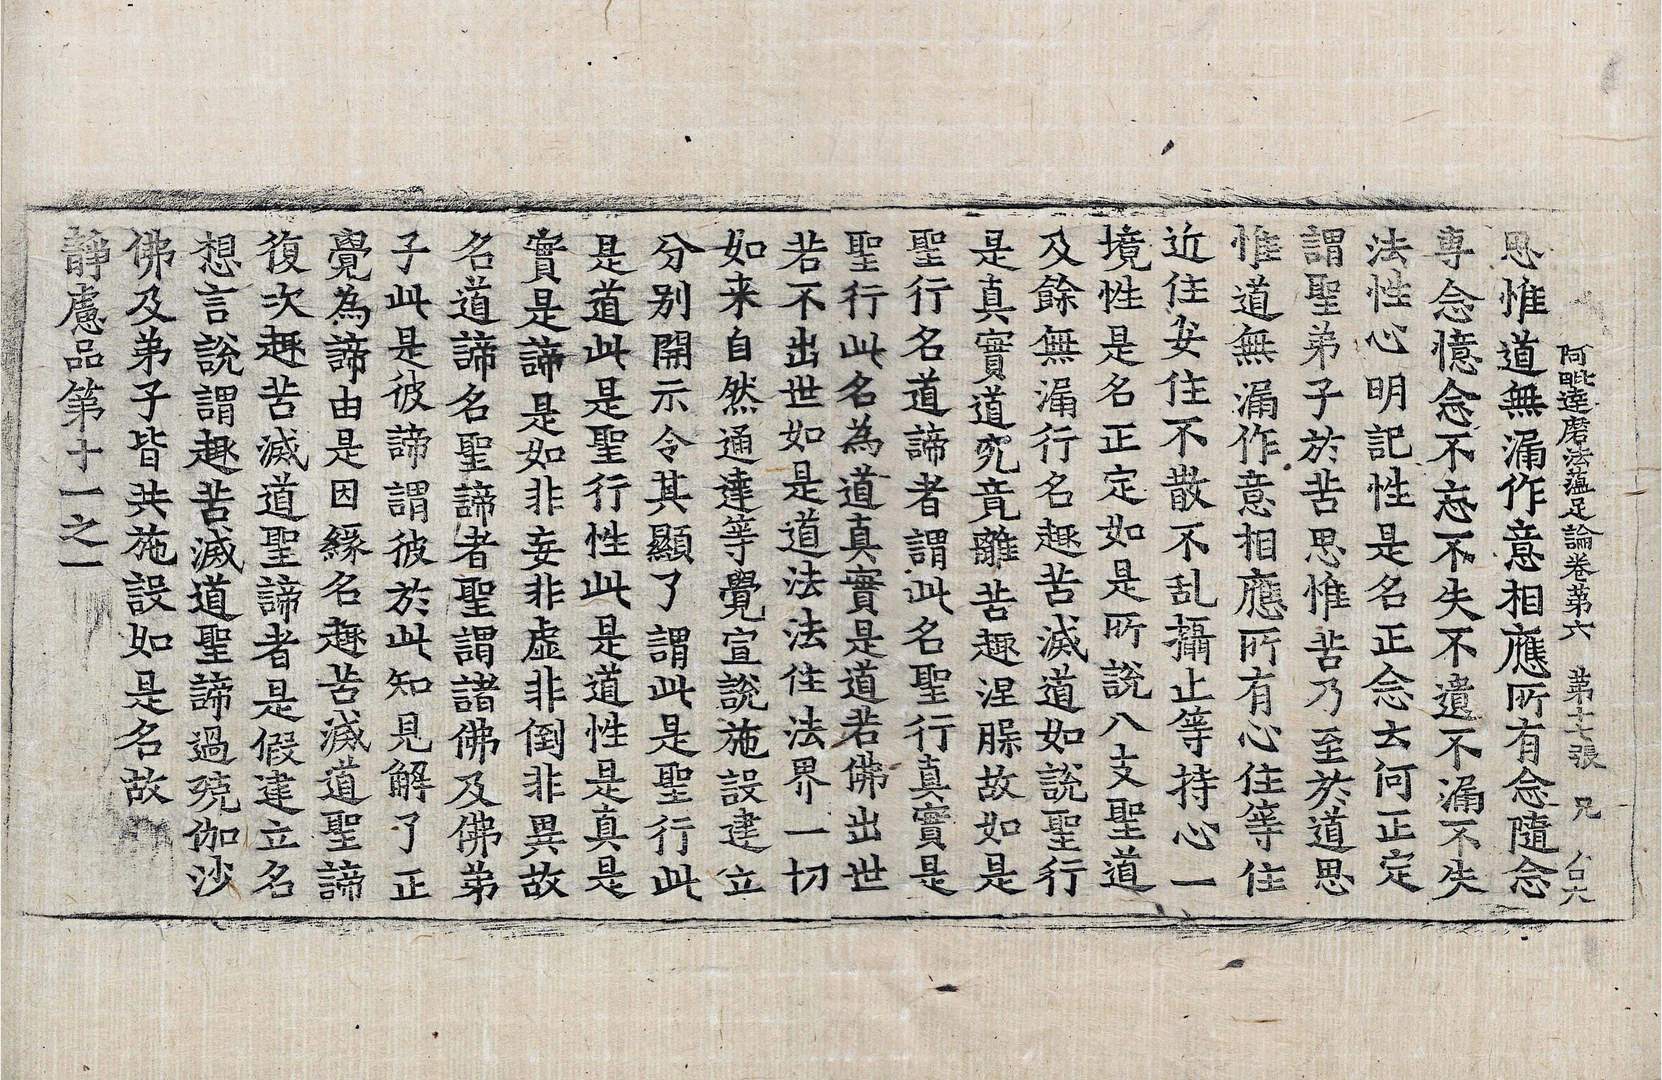 阿毗達磨法蘊足論卷第六 第十七張 兄
思惟道無漏作意相應所有念隨念
專念憶念不忘不失不遺不漏不失
法性心明記性是名正念云何正定
謂聖弟子於苦思惟苦乃至於道思
惟道無漏作意相應所有心住等住
近住安住不散不乱攝止等持心一
境性是名正定如是所說八支聖道
及餘無漏行名趣苦滅道如說聖行
是真實道究竟離苦趣涅槃故如是
聖行名道諦者謂此名聖行真實是
聖行此名為道真實是道若佛出世
若不出世如是道法法住法界一切
如来自然通達等覺宣說施設建立
分別開示令其顯了謂此是聖行此
是道此是聖行性此是道性是真是
實是諦是如非妄非虛非倒非異故
名道諦名聖諦者聖謂諸佛及佛弟
子此是彼諦謂彼於此知見解了正
覺為諦由是因緣名趣苦滅道聖諦
復次趣苦滅道聖諦者是假建立名
想言說謂趣苦滅道聖諦過殑伽沙
佛及弟子皆共施設如是名故
靜慮品第十一之一